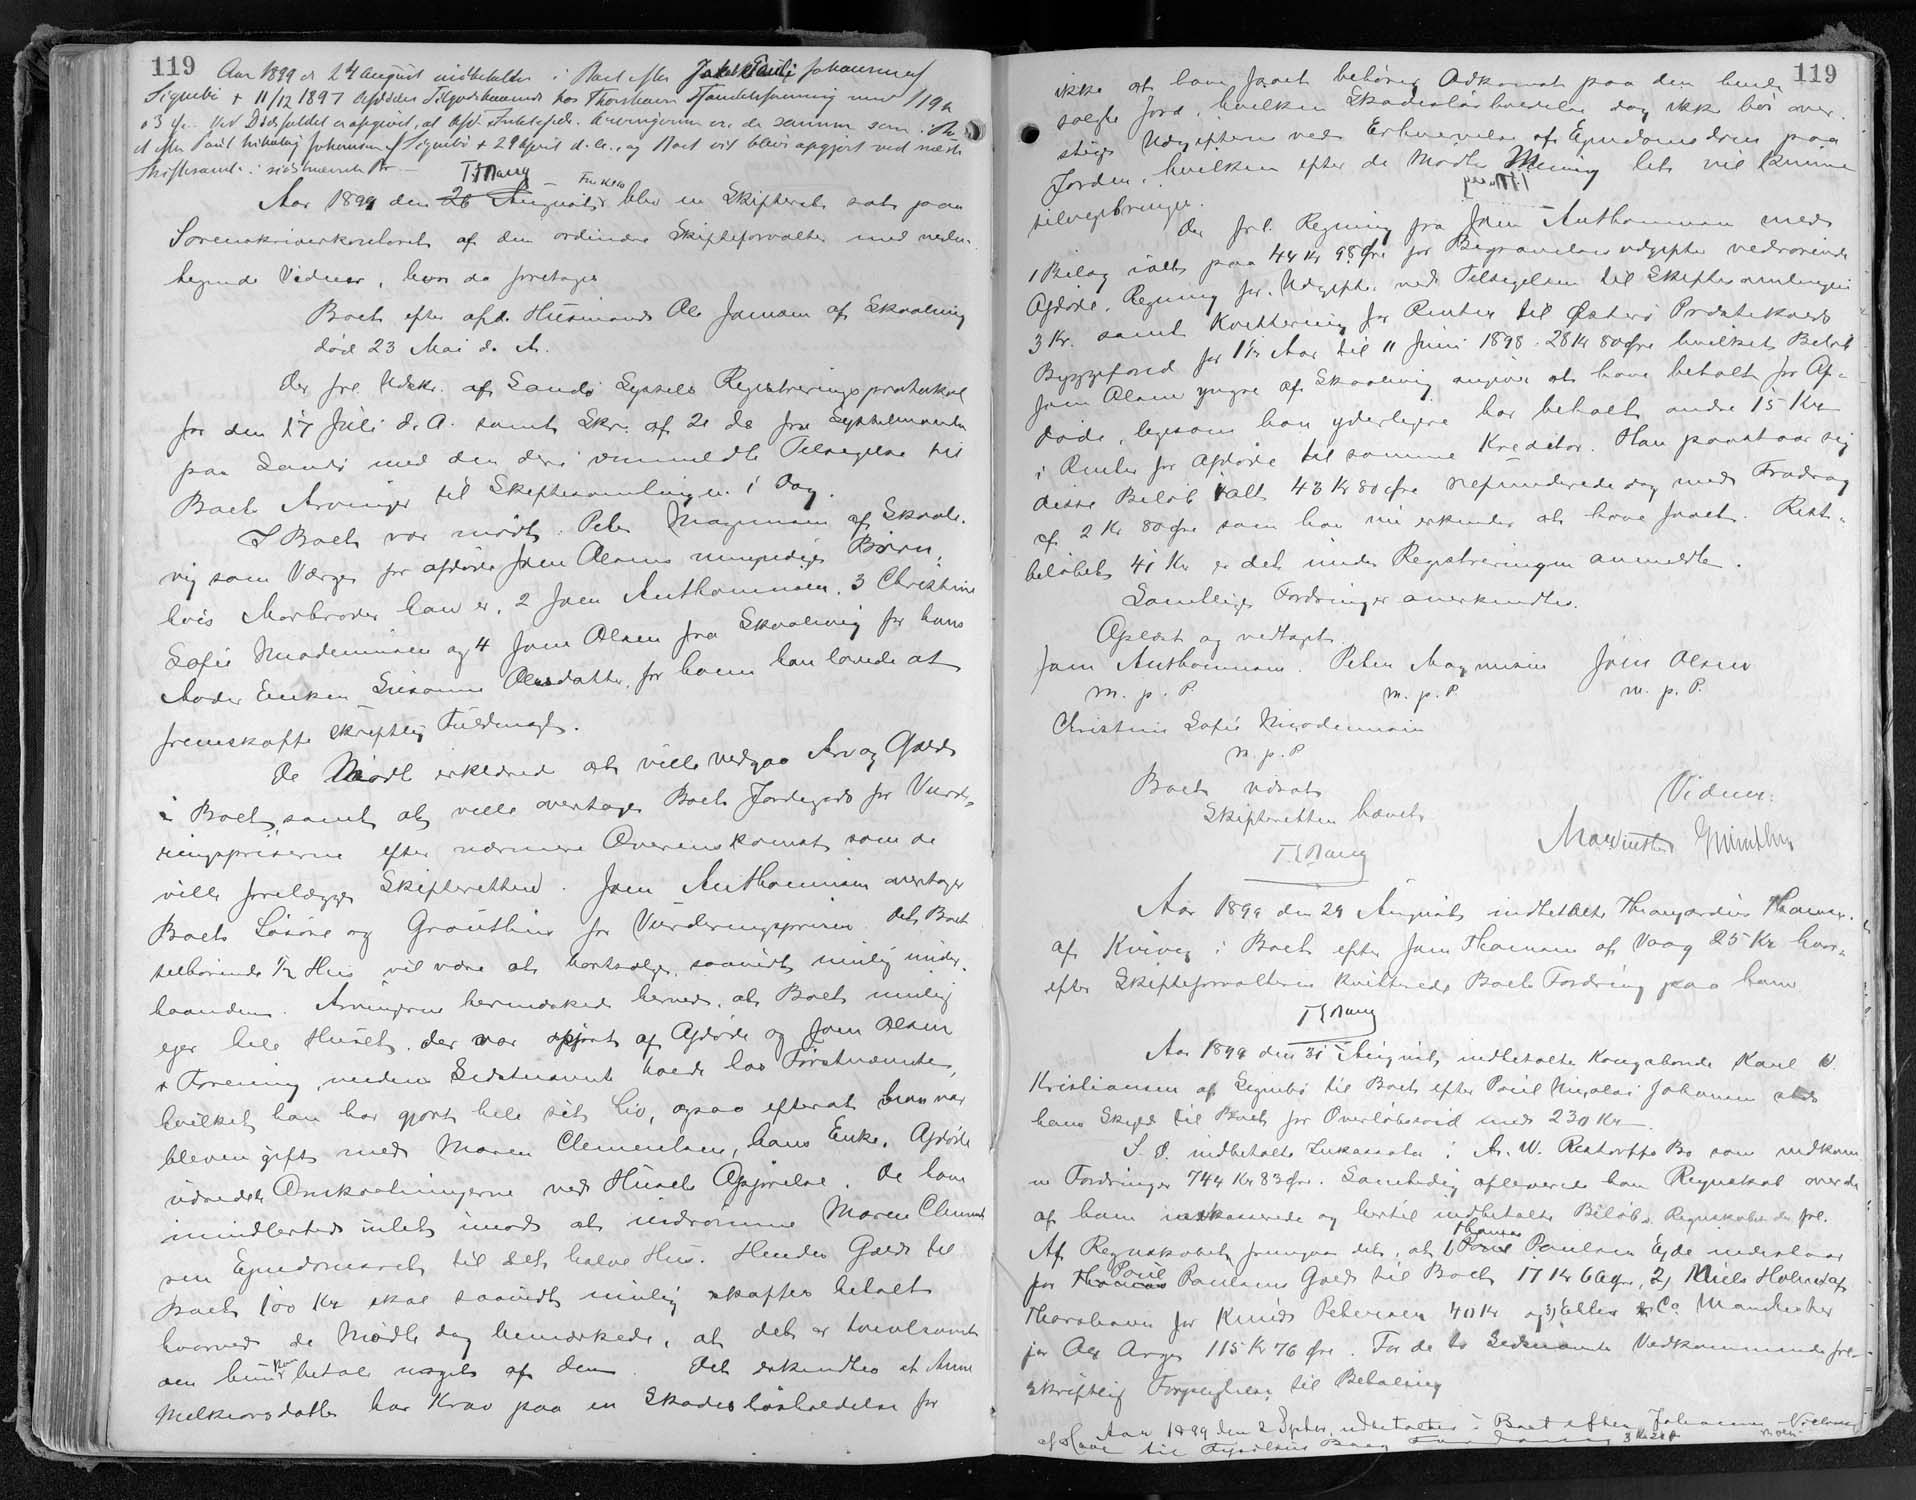 119
Aar 1899 d 24 August indbetaltes i Boet efter Jakob Pauli Johannesen af
Signebö + 11/12 1897 Afdödes Tilgodehavende hos Thorshavn Handelsforening med 119 Kr
03 Øre. Ved Dödsfaldet er opgivet, at Afd. Arvingerne er de samme som i Bo
et efter Poul Nikolaj Johannesen af Signebö + 29 April d. A., og Boet vil blive opgjort ved næste
Skiftesamle i sidstnævnte Bo —
T S Bang
Aar 1899 den 26 August blev en Skifteret sat paa
Sorenskriverkontoret af den ordinære Skifteforvalter med veder-
hegnede Vidner, hvor da foretoges
Boet efter afd. Husmand Ole Joensen af Skaalevig
död 23 Mai d. A.
Der frl. Udskr. af Sandö Syssels Registreringsprotokol
for den 17 Juli d. A. samt Skr. af 21 ds fra Sysselmanden
paa Sandö med den deri ommeldte Tilsigelse til
Boets Arvinger til Skiftesamlingen i Dag.
I Boet var mödt: Peter Magnussen af Skaale-
vig som Værge for afdöde Joen Olsens umyndige Börn,
hvis Morbroder han er, 2 Joen Anthoniussen, 3 Christine
Sofie Nicodemussen og 4 Joen Olsen fra Skaalevig for hans
Moder Enken Susanne Olesdatter, for hvem han lovede at
fremskaffe skriftlig Fuldmagt.
De Mödte erklærede at ville vedgaa Arv og Gæld
i Boet, samt at ville overtage Boets Jordegods for Vurde-
ringspriserne efter nærmere Overenskomst som de
ville forelægge Skifteretten. Joen Anthoniussen overtager
Boets Lösöre og Grouthus for Vurderingsprisen. Det Boet
tilhörende 1/2 Hus vil være at bortsælge, saavidt mulig under-
haanden. Arvingerne bemærkede herved, at Boet mulig
ejer hele Huset, der var opfört af Afdöde og Joen Olsen
i Forening, medens Sidstnævnte boede hos Förstnævnte,
hvilket han har gjort hele sit Liv, ogsaa efterat han var
bleven gift med Maren Clementsen, hans Enke. Afdöde
udredede Omkostningerne ved Husets Opförelse. De have
imidlertid intet imod at indrömme Maren Clements
sen Ejendomsret til det halve Hus. Hendes Gæld til
Boet 100 Kr skal saavidt mulig skaffes betalt
hvorved de Mödte dog bemærkede, at det er tvivlsomt
om hun kan betale noget af den. Det erkendtes at Anne
Melkiorsdatter har Krav paa en Skadeslösholdelse for
119
ikke at have faaet behörig Adkomst paa den hende
solgte Jord, hvilken Skadeslösholdelse dog ikke bör over-
stige Udgifterne ved Erhvervelse af Ejendomsdom paa
Jorden, hvilken efter de Mödtes Mening let vil kunne
tilvejebringes.
T S Bang
Der frl. Regning fra Joen Anthoniussen med
1 Bilag ialt paa 44 Kr 98 Øre for Begravelsesudgifter vedrörende
Afdöde, Regning for Udgifter ved Tilsigelsen til Skiftesamlingen
3 Kr. samt Kvittering for Renter til Østerö Præstekalds
Byggefond for 1 1/2 Aar til 11 Juni 1898 28 Kr 80 Øre hvilket Belöb
Joen Olsen yngre af Skaalevig angiver at have betalt for Af-
döde, ligesom han yderligere har betalt andre 15 Kr
i Renter for Afdöde til samme Kreditor. Han paastaar sig
disse Belöb ialt 43 Kr 80 Øre refunderede dog med Fradrag
af 2 Kr 80 Øre som han nu erkender at have faaet. Rest-
belöbet 41 Kr er det under Registreringen anmeldte.
Samtlige Fordringer anerkendtes.
Oplæst og vedtaget.
Joen Anthoniussen. Peter Magnussen Joen Olsen
m. p. P. m. p. P. m. p. P.
Christine Sofie Nicodemussen
m. p. P
Boet udsat
Skifteretten hævet
T S Bang
Vidner:
Aar 1899 den 29 August indbetalte Thomas
af Kvivig i Boet efter Joen Thomsen af Vaag 25 Kr hvor-
efter Skifteforvalteren kvitterede Boets Fordring paa ham
T S Bang
Aar 1899 den 31 August indbetalte Kongsbonde Karl W.
Kristiansen af Signebö til Boet efter Poul Nicolai Johannesen
hans Skyld til Boet for Overlöbsvid med 230 Kr
S. D. indbetalte Inkassator i A. W. Restorffs Bo som indkom
ne Fordringer 744 Kr 83 Øre. Samtidig afleverede han Regnskab over de
af ham inkasserede og hertil indbetalte Belöb. Regnskabet der frl.
Af Regnskabet fremgaar det, at 1 Thomas Poulsen Ejde indestaar
for Poul Poulsens Gæld til Boet 17 Kr 60 Øre, 2) Niels Holm af
Thorshavn for Knud Petersen 40 Kr og 3) Eller & Co. Manchester
for Ole Arge 115 Kr 76 Øre. For de to Sidstnævntes Vedkommende frl.
skriftlig Forpligtelse til Betaling
Aar 1899 den 2 Sptbr. indbetaltes i Boet efter Johannes